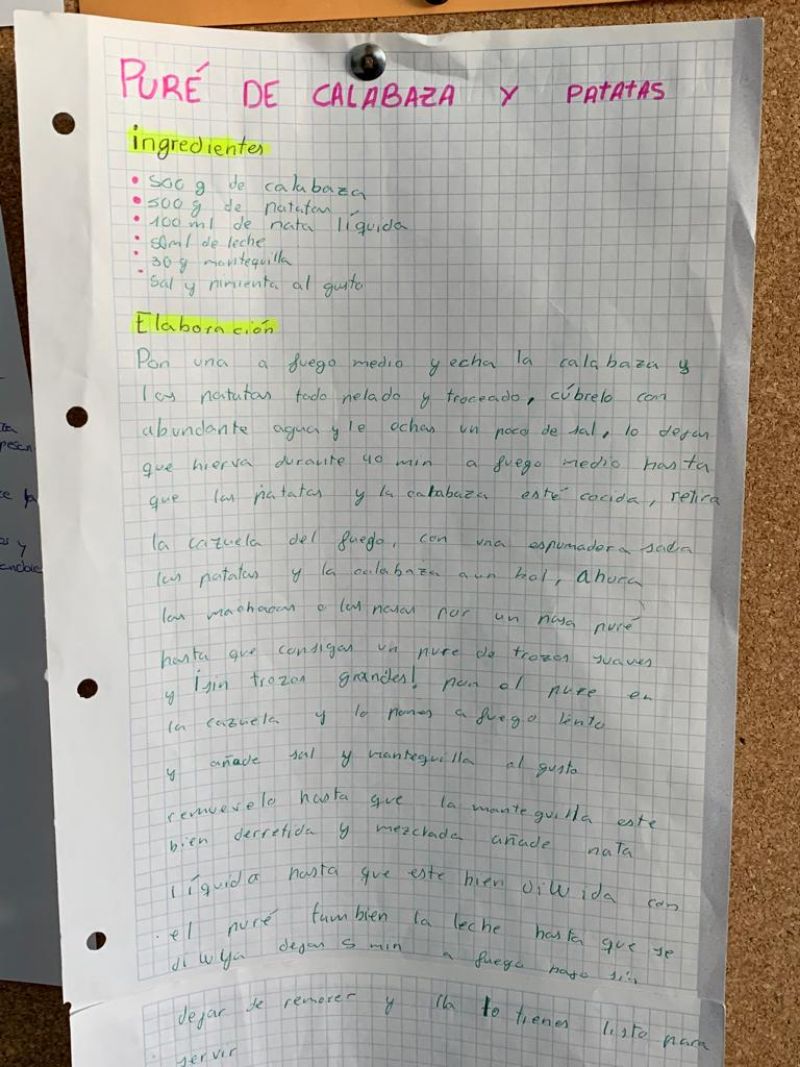 PURÉ DE CALABAZA Y PATATAS
ingredientes
• 500 g de calabaza
• 500 g de patatas
• 100 ml de nata líquida
• 50ml de leche
• 30 g mantequilla
• Sal y pimienta al gusto
Elaboración
Pon una a fuego medio y echa la calabaza y
las patatas todo pelado y troceado, cúbrelo con
abundante agua y le echas un poco de sal, lo dejas
que hierva durante 40 min a fuego medio hasta
que las patatas y la calabaza esté cocida, retira
la cazuela del fuego, con una espumadera
las patatas y la calabaza a un bol, Ahora
las machacas o las pasas por un pasa puré
hasta que consigas un pure de trozos suaves
y ¡sin trozos grandes! pon el pure en
la cazuela y lo pones a fuego lento
y añade sal y mantequilla al gusto
remuevelo hasta que la mantequilla este
bien derretida y mezclada añade nata
líquida hasta que este bien diluida con
el puré tambien la leche hasta que se
diluya dejas 5 min a fuego bajo sin
dejar de remover y lla lo tienes listo para
servir
pesan